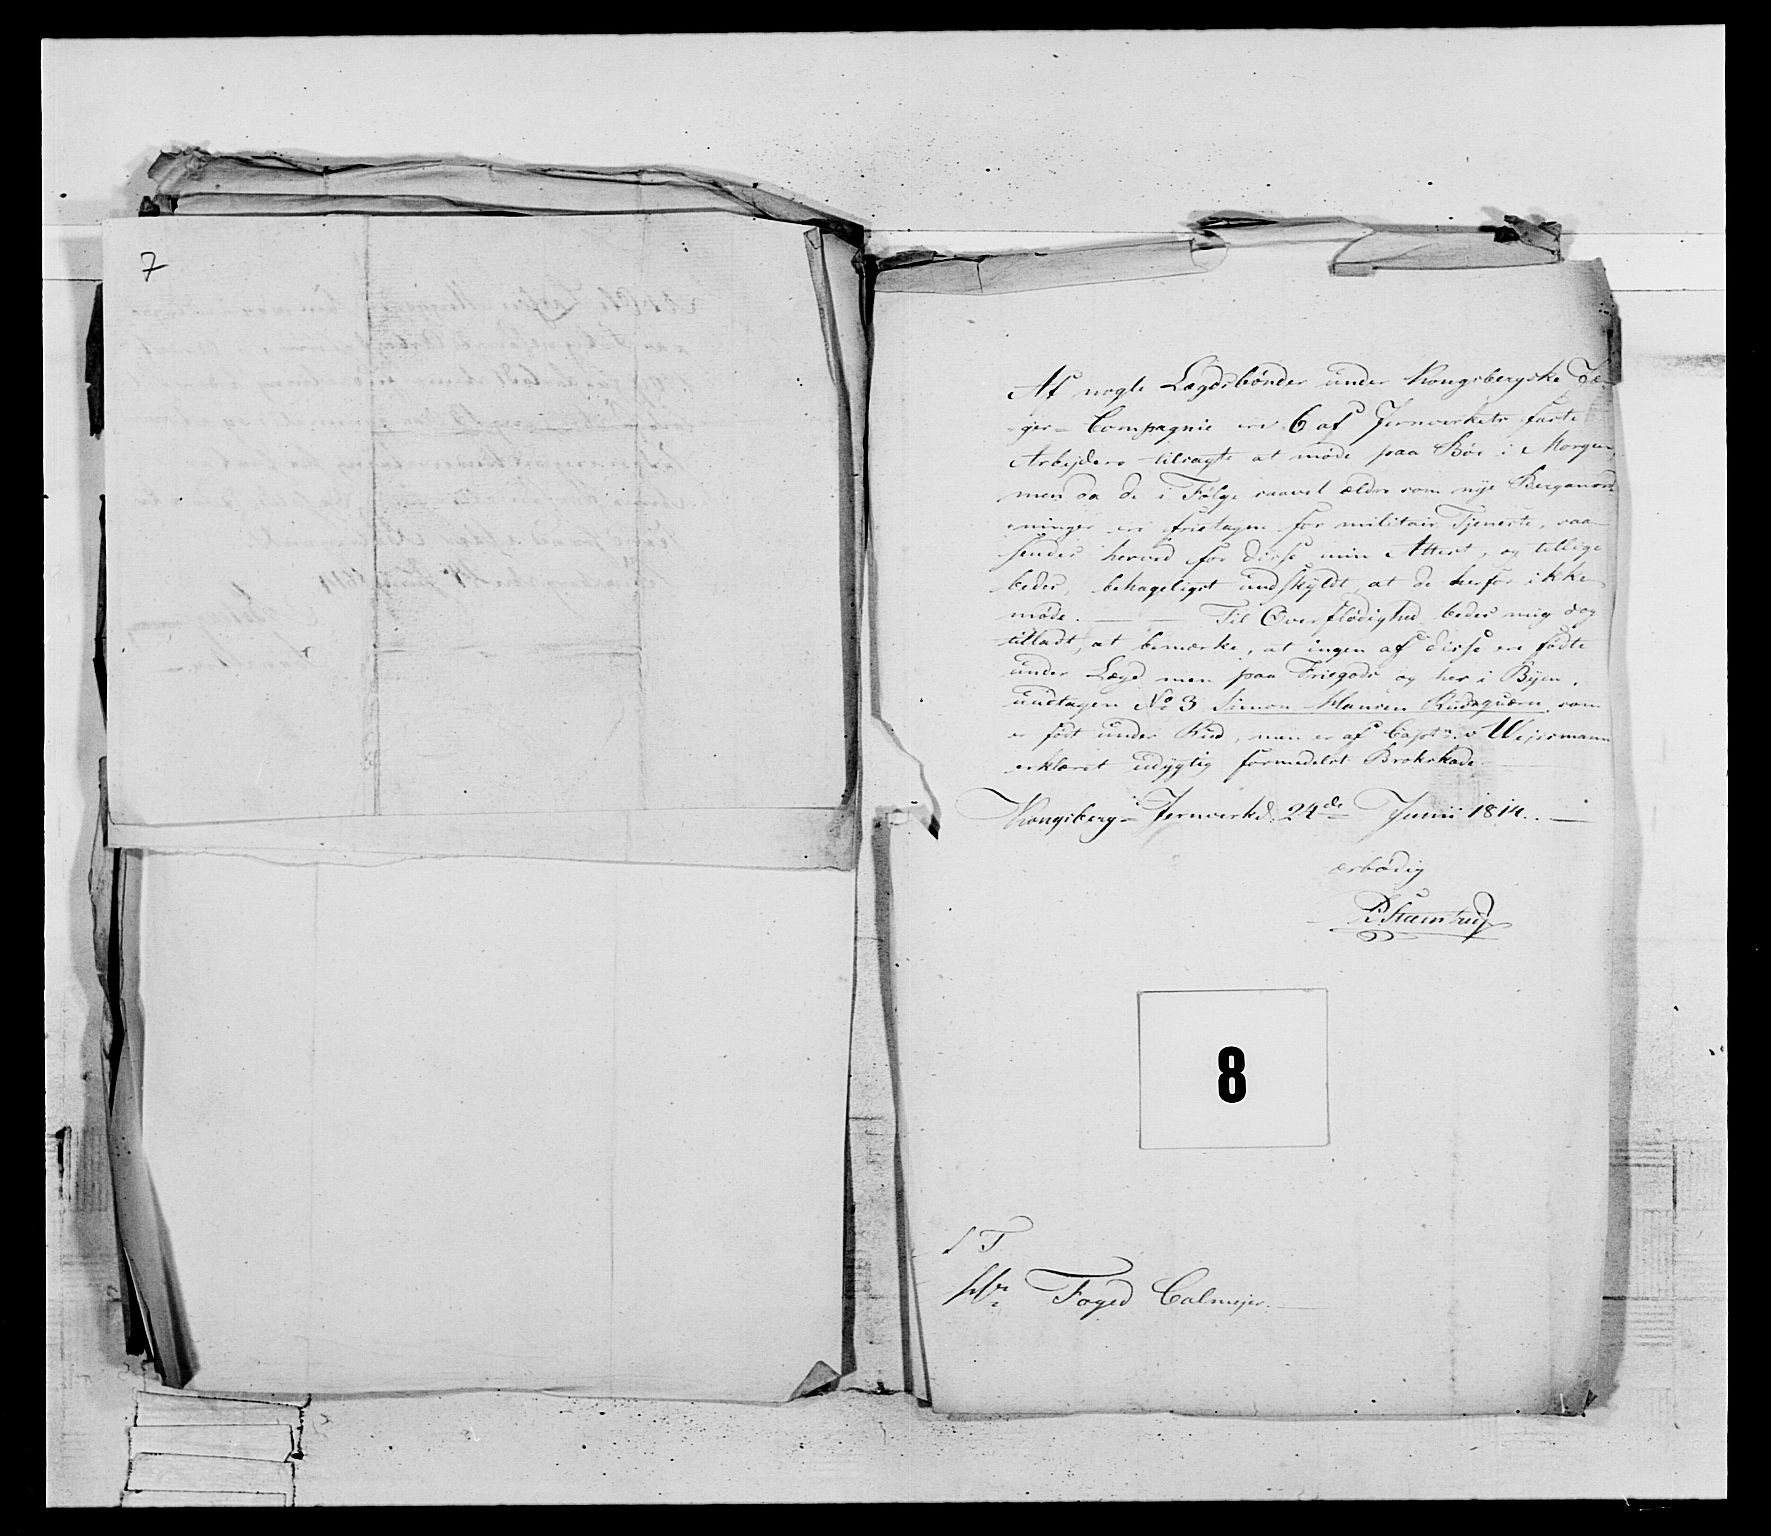 7
Af nogle Lægdsbønder under Kongsbergske Jæ-
ger-Compagnie ere 6 af Jernverkets faste
Arbejdere tilsagte at møde paa Bøe i Morgen,
men da de i Følge saavel ældre som nye Berganord-
ninger ere fritagne for militair Tjeneste, saa
sendes herved for disse min Attest, og tillige
bedes, behageligst undskyldt at de herfor ikke
møde. — — Til Overflødighed bedes mig dog
tilladt, at bemærke, at ingen af disse ere fødte
under Lægd men paa Friegods og her i Byen,
undtagen No 3 Simon Hansen Rudsquærn, som
er født under Rud, men er af Captn v Wejssmann
erklæret udygtig formedelst Brokskade.
Kongsberg Jernverk d. 24de Junii 1814. —
ærbødig
P. Steenstrup
8
S T
Hr Foged Colmejer. —